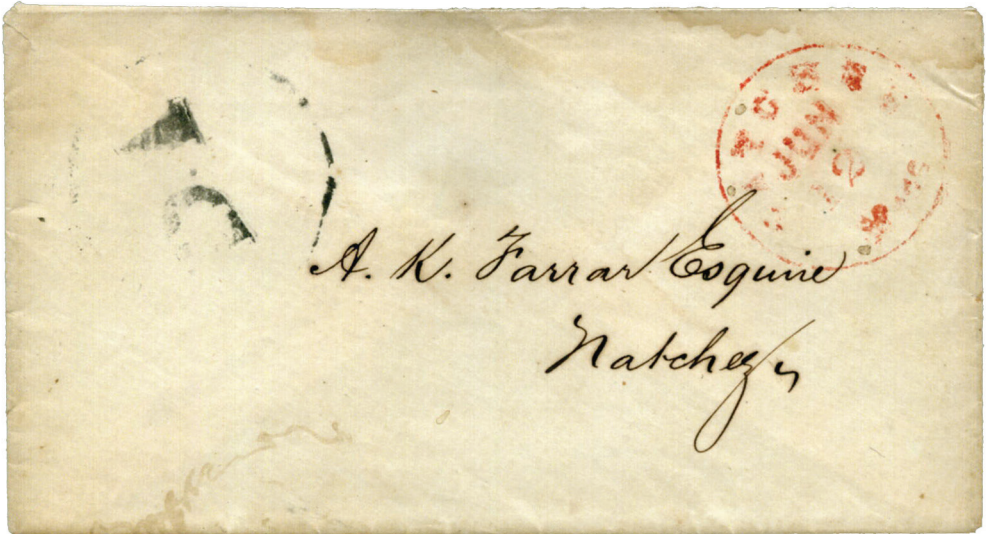 JUN
A. K. Farrar Esquire
Natchez,